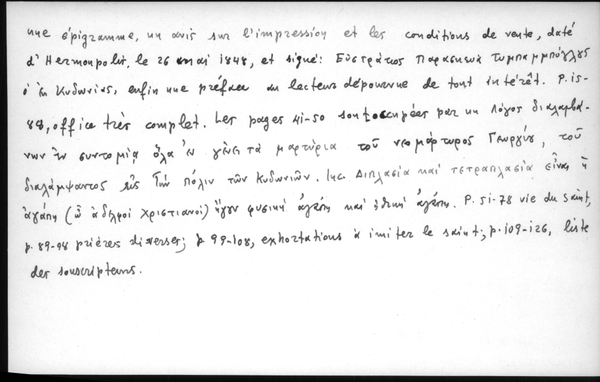 une épigramme, un avis sur l'impression et les conditions de vente, daté
d'Hermoupolis, le 26 mai 1848, et signé: Εὐστράτιος Παρασκευᾶ
ὁ ἐκ Κυδωνίας, enfin une préface au lecteur dépourvue de tout intérêt. P. 15-
88, office très complet. Les pages 41-50 sont occupées par un λόγος διαλαμβά-
νων ἐν συντομίᾳ ὅλα ἐν γένει τὰ μαρτύρια τοῦ νεομάρτυρος Γεωργίου, τοῦ
διαλάμψαντος εἰς τὴν πόλιν τῶν Κυδωνιῶν. Inc. Διπλασία καὶ τετραπλασία εἶναι ἡ
ἀγάπη (ὦ ἀδελφοὶ χριστιανοί) ἤγουν φυσικὴ ἀγάπη καὶ ἀγάπη. P. 51-78 vie du saint,
p. 89-98 prières diverses; p 99-108, exhortations à imiter le saint; p. 109-126, liste
des souscripteurs.